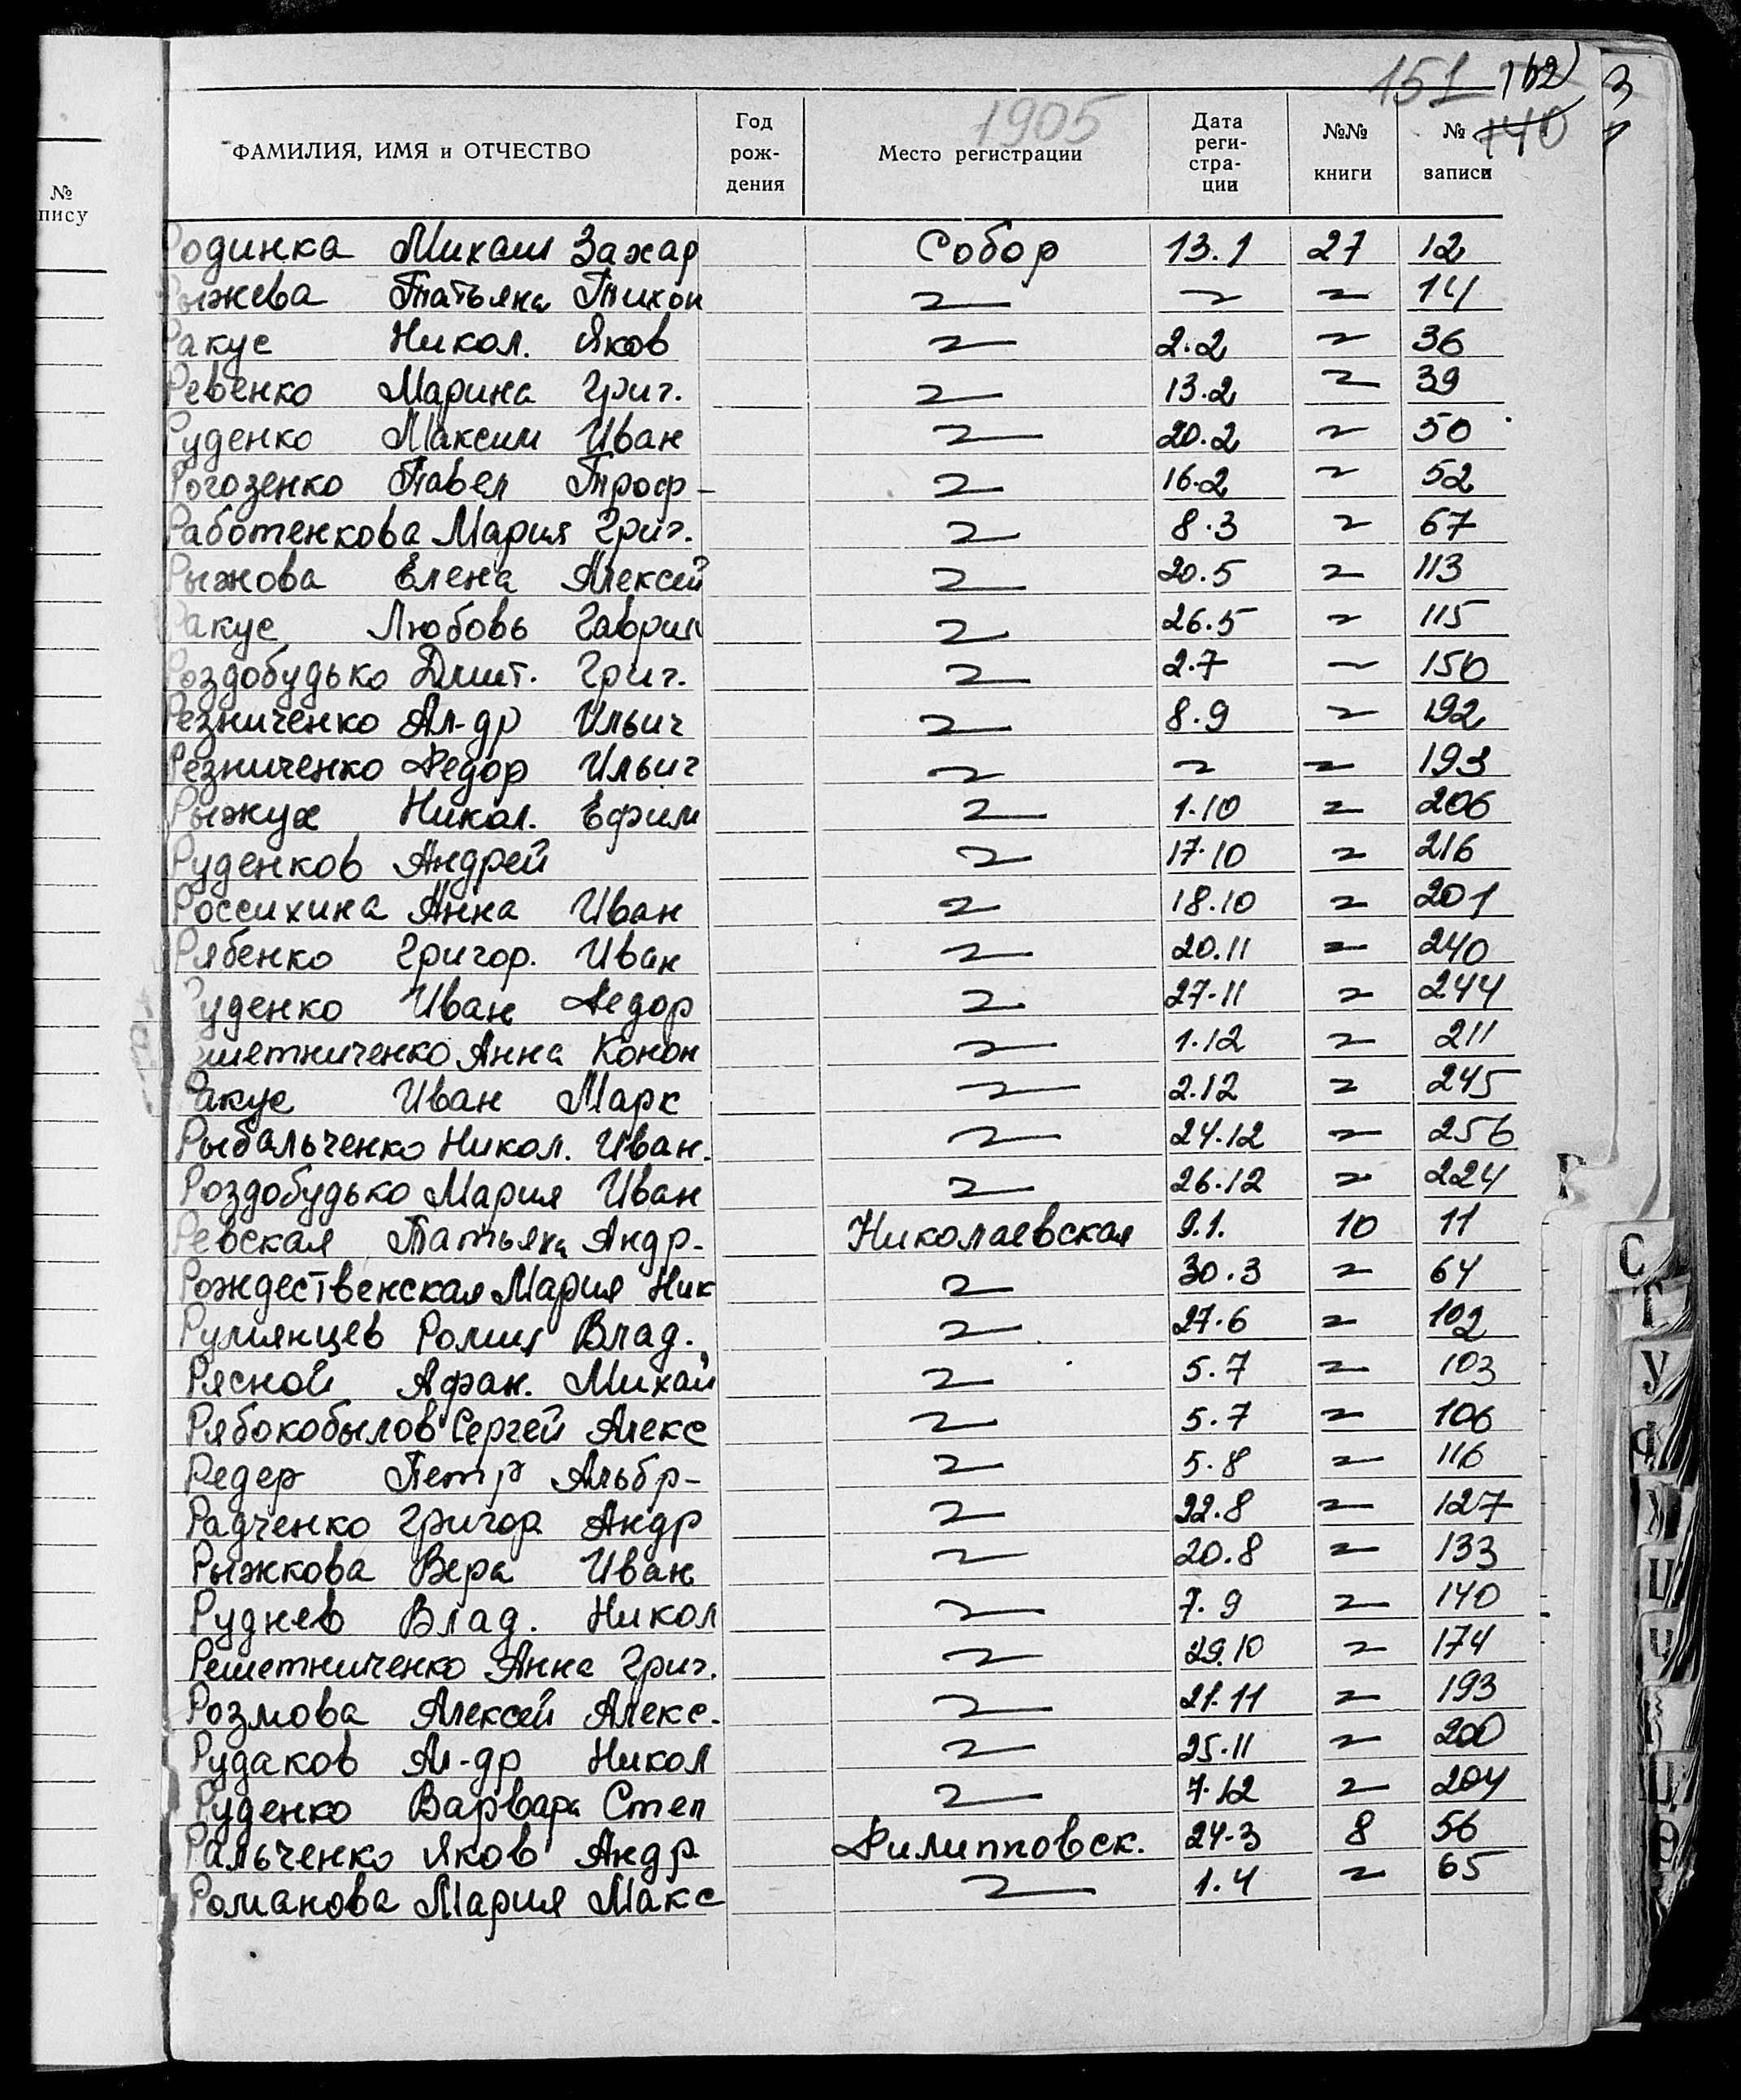 151 162
140
1905
ФАМИЛИЯ, ИМЯ и ОТЧЕСТВО Год рож- дения Место регистрации Дата реги- стра- ции №№ книги № записи
№
пису
Родинка Михаил Захар Собор 13.1 27 12
Рыжева Татьяна Тихон 〃 〃 〃 14
Ракус Никол. Яков 〃 2.2 〃 36
Ревенко Марина Григ. 〃 13.2 〃 39
Руденко Максим Иван 〃 20.2 〃 50
Рогозенко Павел Троф- 〃 16.2 〃 52
Работенкова Мария Григ. 〃 8.3 〃 67
Рыжова Елена Алексей 〃 20.5 〃 113
Ракус Любовь Гаврил 〃 26.5 〃 115
Роздобудько Дмит. Григ. 〃 2.7 〃 150
Резниченко Ал-др Ильич 〃 8.9 〃 192
Резниченко Федор Ильич 〃 〃 〃 193
Рыжух Никол. Ефим 〃 1.10 〃 206
Руденков Андрей 〃 17.10 〃 216
Россихина Анна Иван 〃 18.10 〃 201
Рябенко Григор. Иван 〃 20.11 〃 240
Руденко Иван Федор 〃 27.11 〃 244
Решетниченко Анна Конон 〃 1.12 〃 211
Ракус Иван Марк 〃 2.12 〃 245
Рыбальченко Никол. Иван. 〃 24.12 〃 256
Роздобудько Мария Иван 〃 26.12 〃 224
Ревская Татьяна Андр- Николаевская 9.1. 10 11
Рождественская Мария Ник 〃 30.3 〃 64
Румянцев Роман Влад. 〃 27.6 〃 102
Рясной Афан. Михай 〃 5.7 〃 103
Рябокобылов Сергей Алекс 〃 5.7 〃 106
Редер Петр Альбр- 〃 5.8 〃 116
Радченко Григор Андр 〃 22.8 〃 127
Рыжкова Вера Иван 〃 20.8 〃 133
Руднев Влад. Никол 〃 7.9 〃 140
Решетниченко Анна Григ. 〃 29.10 〃 174
Розмова Алексей Алекс. 〃 21.11 〃 193
Рудаков Ал-др Никол 〃 25.11 〃 200
Руденко Варвара Степ 〃 7.12 〃 204
Ральченко Яков Андр Филипповск. 24.3 8 56
Романова Мария Макс 〃 1.4 〃 65
Р
С
Т
У
Ф
Х
Ц
Ч